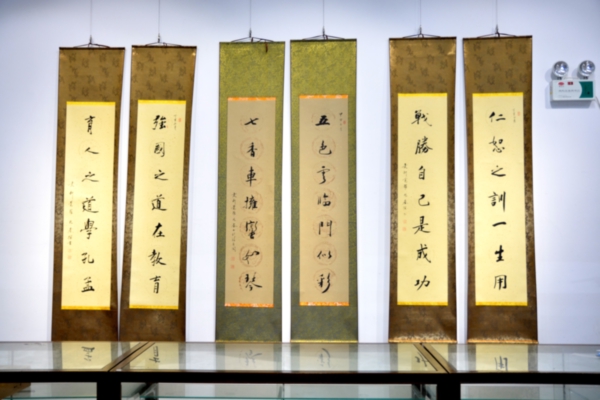 仁恕之訓一生用
戰勝自己是成功
五色雲臨門似彩
七香車擁轡如琴
強國之道在教育
育人之道學孔孟